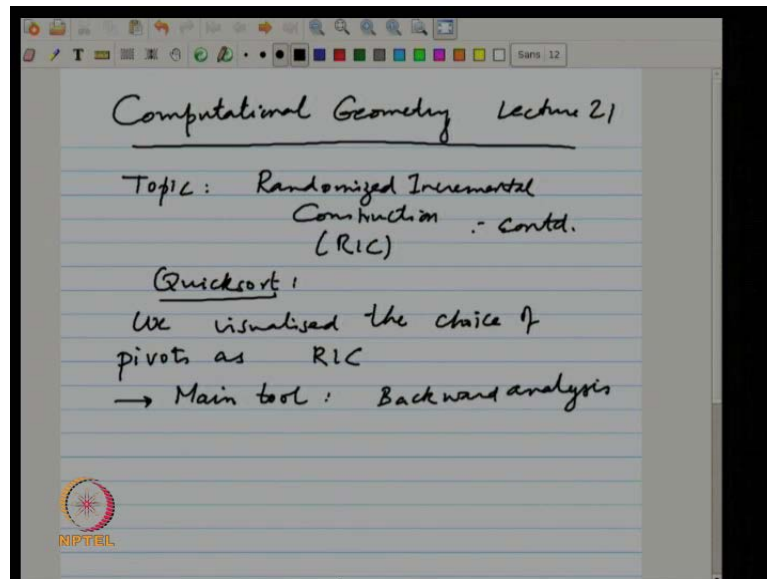 T
Sans 12
Computational Geometry Lecture 21
Topic: Randomized Incremental
Construction :- contd.
(RIC)
Quicksort:
We visualised the choice of
pivots as RIC
→ Main tool: Backward analysis
NPTEL